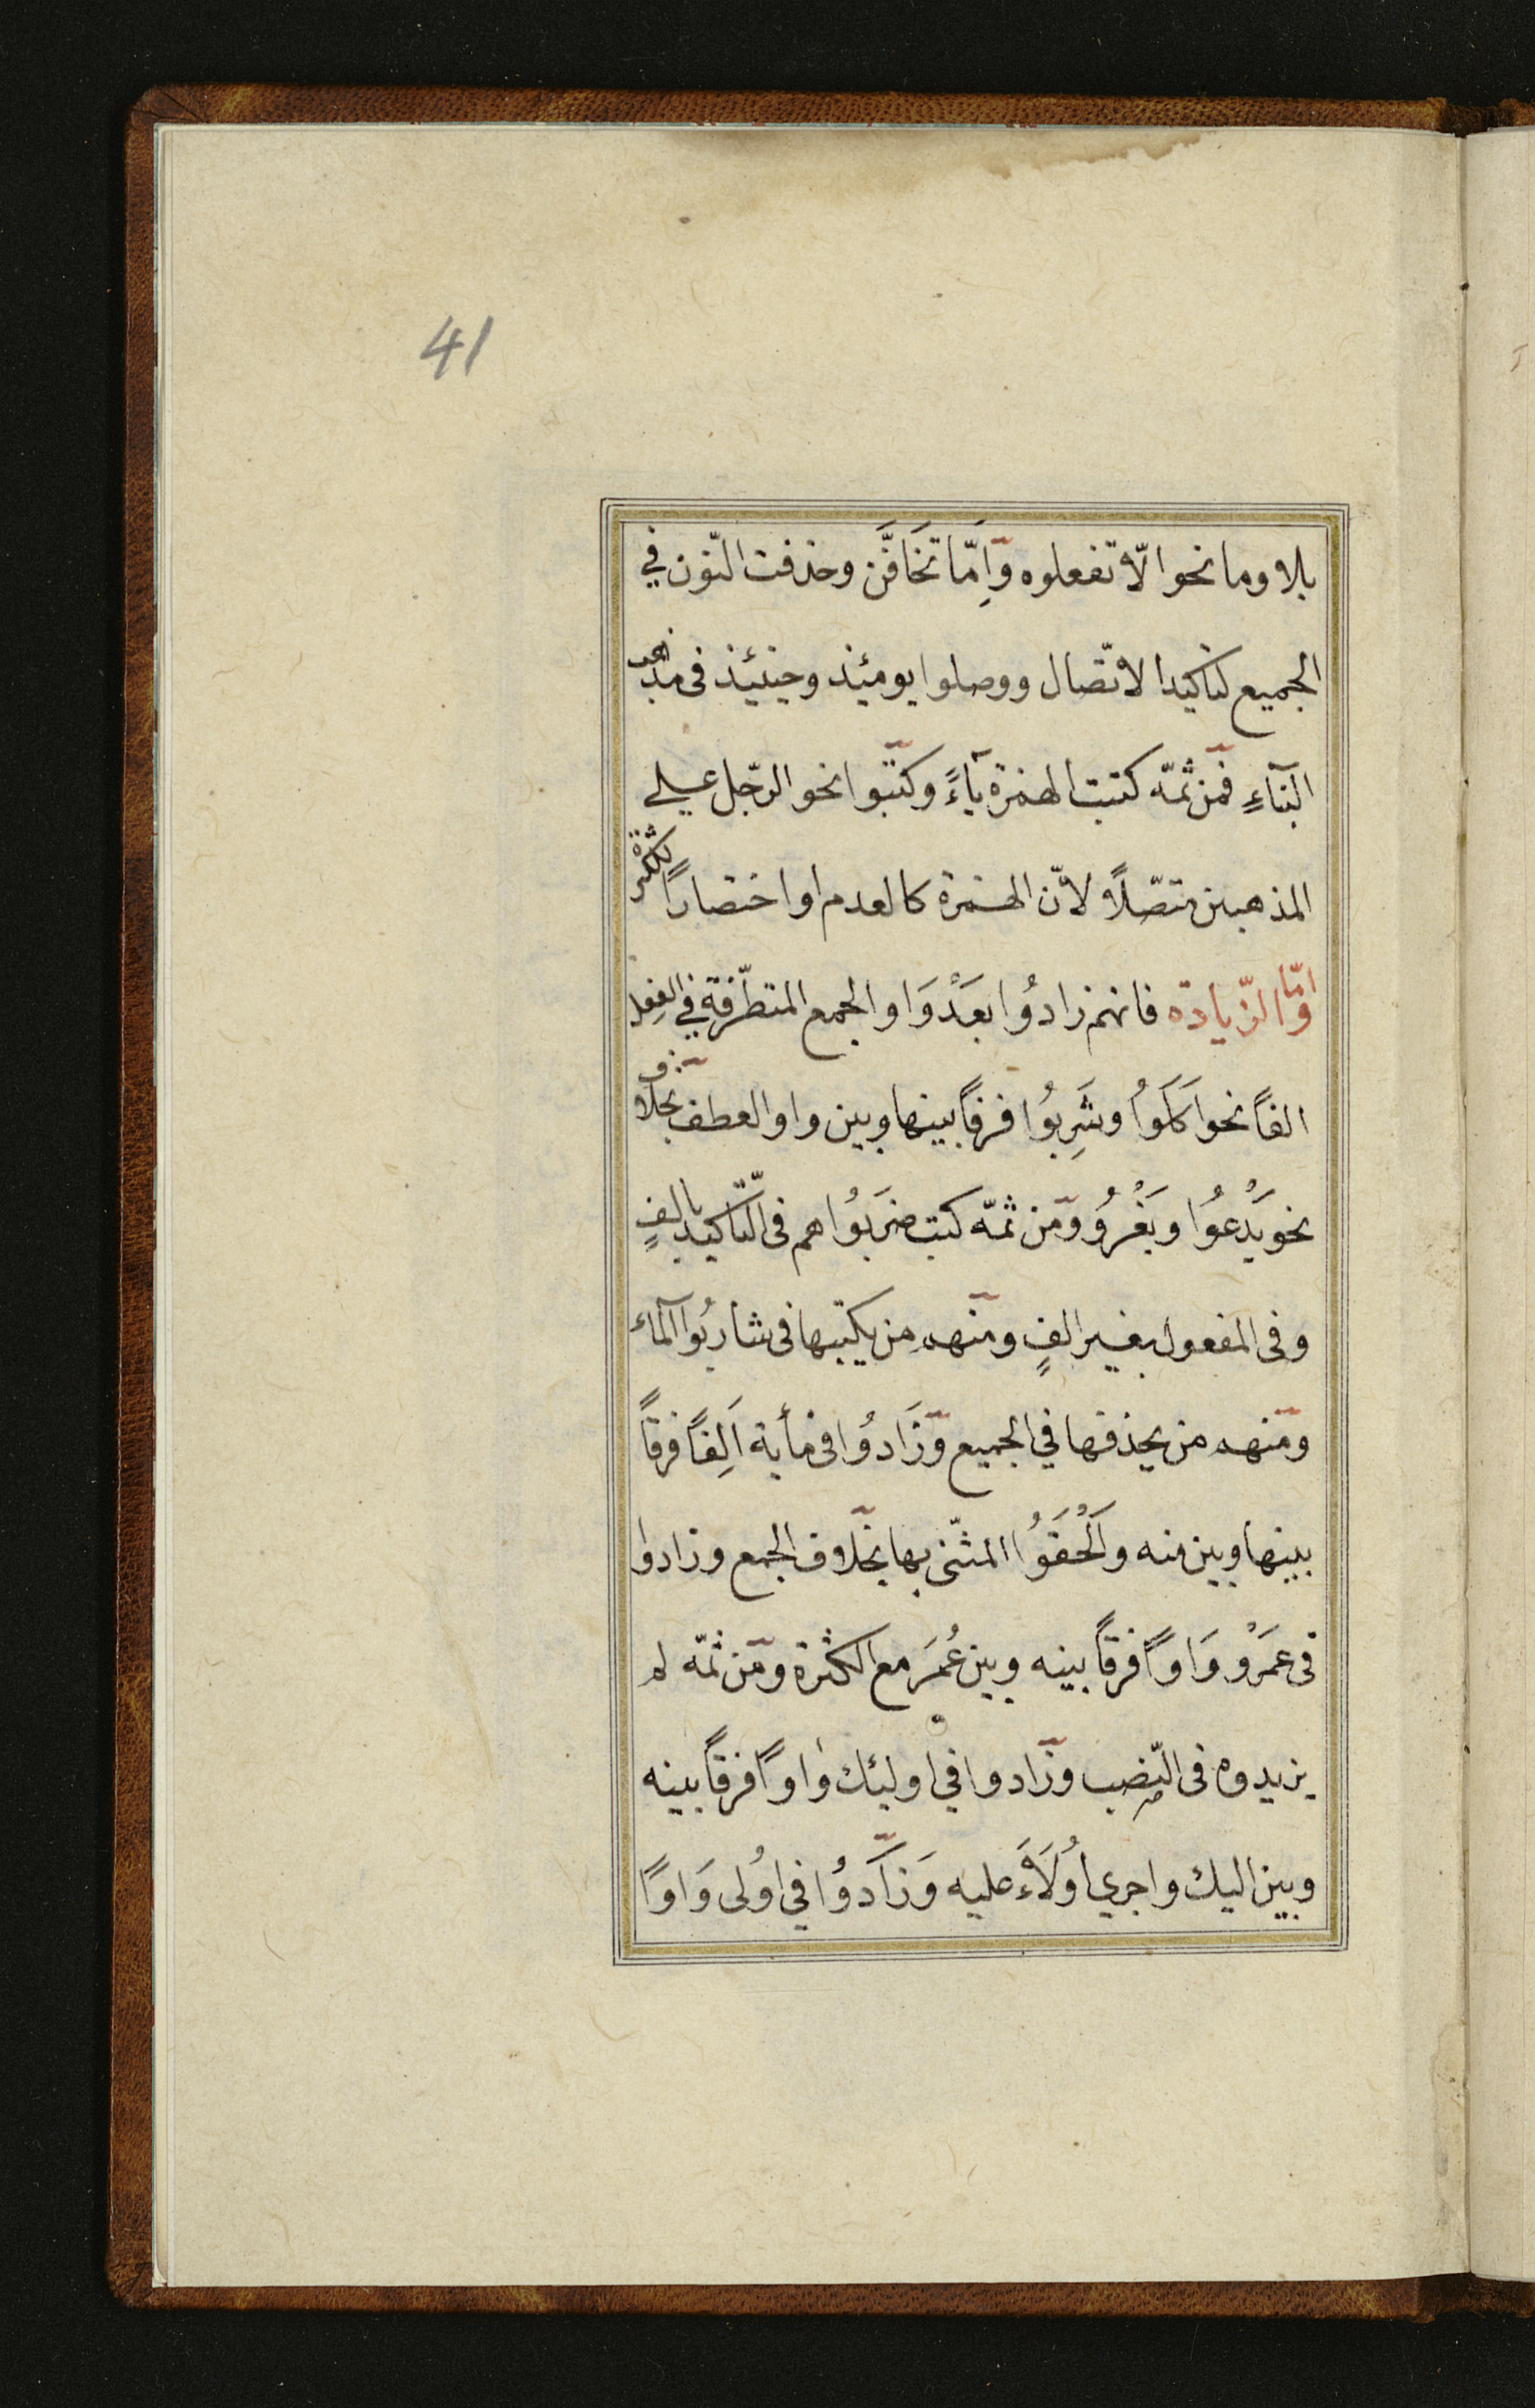 41
بلا وما نحو الّا تفعلوه وَاِمّا تَخَافَنَّ وحذفت النّون في
الجميع لتأكيد الاتّصال ووصلوا يومئذ وحينئذ فى مذهب
البنَاءِ فمن ثمّه كتبت الهمزة يآءً وكتبوا نحو الرّجل على
المذهبين متّصلاً لانّ الهمزة كالعدم او اختصاراً للكثرة
وامّا الزّيادة فانهم زادُوا بعَدْ وَاو الجمع المتطرّفة في الفعل
الفاً نحو اَكَلَوُا وشَرِبُوا فرقاً بينها وبين واو العطف بخلاف
نحو يَدْعُوا ويَغْزُو ومن ثمّه كتب ضرَبُوا هم فى التّأكيد بالفٍ
وفى المفعول بغير الفٍ ومنهم من يكتبها فى شاربُوا المآء
ومنهم من يحذفها في الجميع وزَادُوا فى مأية اَلِفاً فرقاً
بينها وبين منه واَلْحَقَوُا المثنّى بها بخلاف الجمع وزادوا
فى عمَرْو وَاواً فرقاً بينه وبين عُمَرَ مع الكثرة ومن ثمّه لم
يزيدوه فى النّصب وزادوا في اولئك وَاواً فرقاً بينه
وبين اليك واجري اُولَآءِ عليه وَزادوُا في اوُلى وَاواً